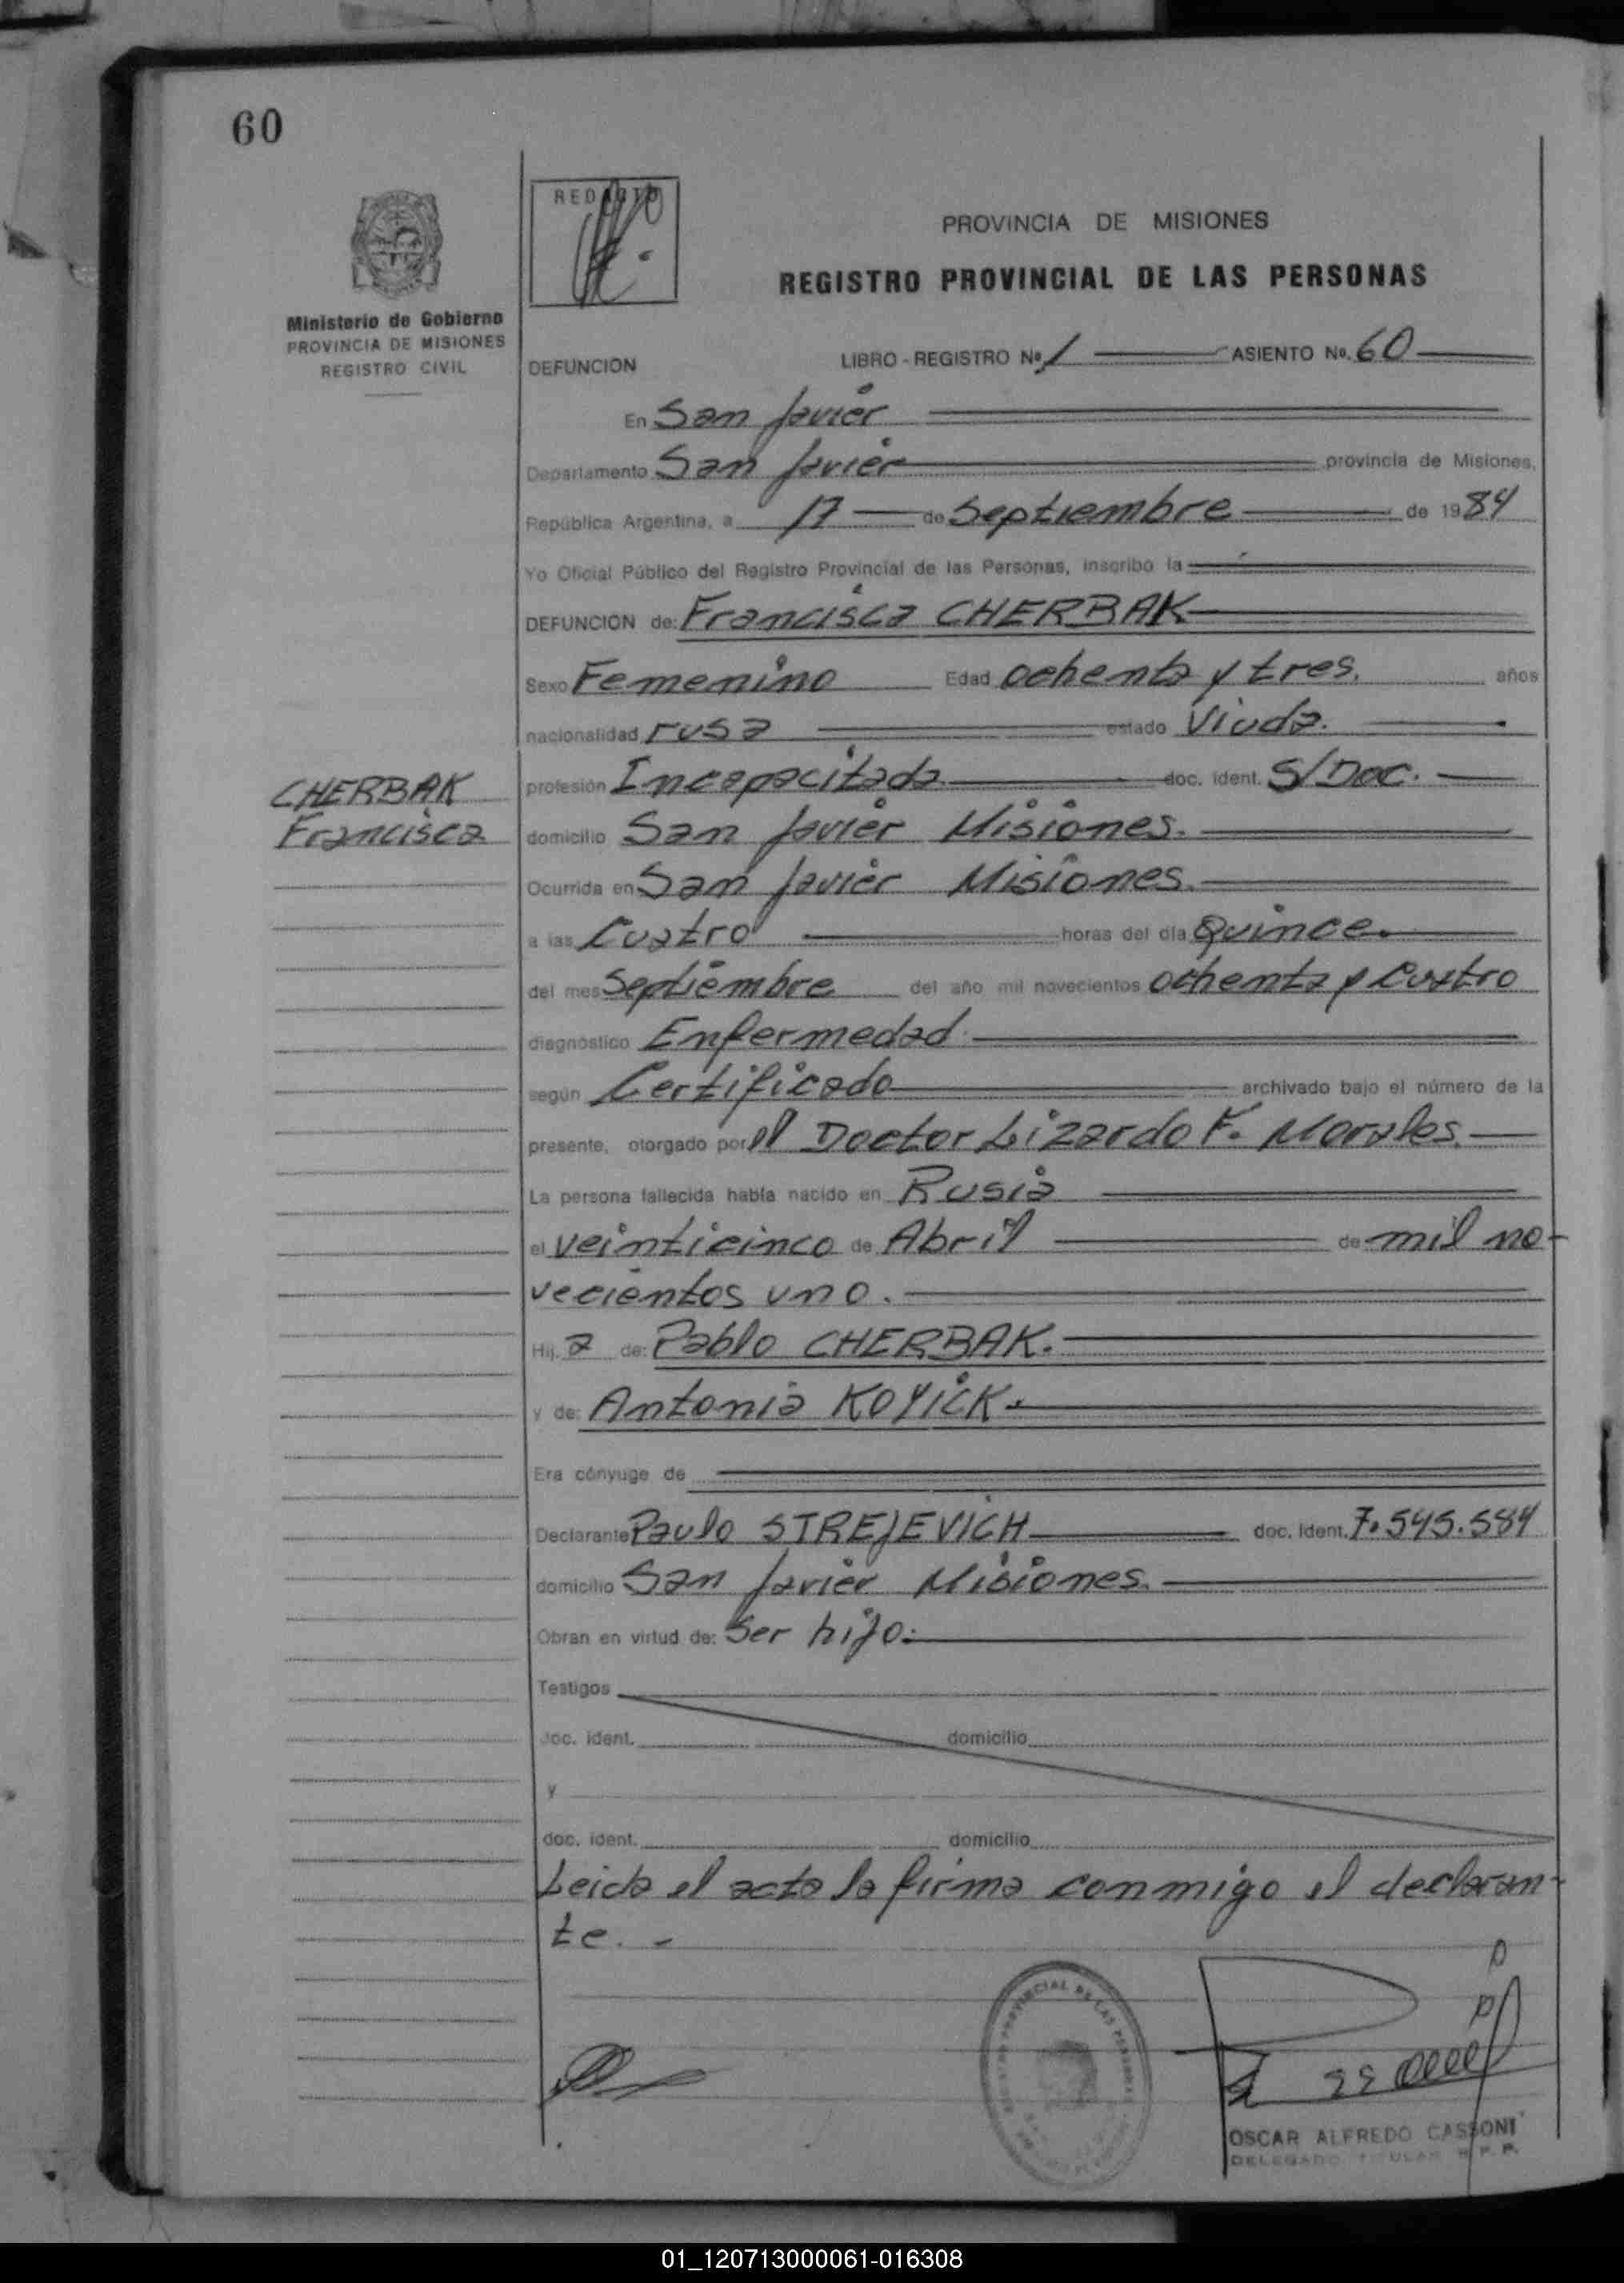 60
REDACTO
PROVINCIA DE MISIONES
REGISTRO PROVINCIAL DE LAS PERSONAS
Ministerio de Gobierno
PROVINCIA DE MISIONES
REGISTRO CIVIL
DEFUNCION LIBRO - REGISTRO No. 1 ASIENTO No. 60
En San Javier
Departamento San Javier provincia de Misiones,
República Argentina, a 17 de Septiembre de 1984
Yo Oficial Público del Registro Provincial de las Personas, inscribo la
DEFUNCION de: Francisca CHERBAK
Sexo Femenino Edad ochenta y tres. años
nacionalidad rusa estado Viuda.
CHERBAK
Francisca
profesión Incapacitada doc. ident. S/Doc.
domicilio San Javier Misiones.
Ocurrida en San Javier Misiones.
a las Cuatro horas del día Quince.
del mes Septiembre del año mil novecientos ochenta y Cuatro
diagnóstico Enfermedad.
según Certificado archivado bajo el número de la
presente, otorgado por el Doctor Lizardo F. Morales.
La persona fallecida había nacido en Rusia
el veinticinco de Abril de mil no-
vecientos uno.
Hij a de: Pablo CHERBAK.
y de: Antonia KOYICK.
Era cónyuge de
Declarante Paulo STREJEVICH doc. ident. 7.545.584
domicilio San Javier Misiones.
Obran en virtud de: Ser hijo.
Testigos
doc. ident. domicilio
y
doc. ident. domicilio
Leida el acta la firma conmigo el declaran-
te. -
OSCAR ALFREDO CASSONI
DELEGADO TITULAR R. P. P.
01_120713000061-016308